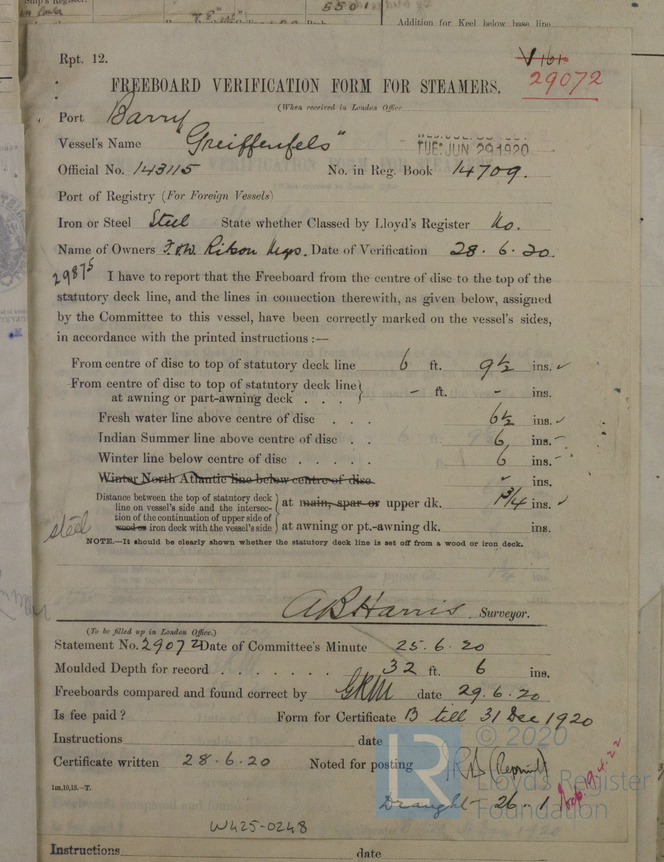 Ship's Register.
5501
Addition for Keel below base line
Rpt. 12.
29072
FREEBOARD VERIFICATION FORM FOR STEAMERS.
(When received in London Office
Port Barry
Vessel's Name "Greiffenfels"
TUE. JUN 29 1920
Official No. 143115 No. in Reg. Book 14709.
Port of Registry (For Foreign Vessels)
Iron or Steel Steel State whether Classed by Lloyd's Register No.
Name of Owners F. & W. Ritson Mgrs. Date of Verification 28.6.20.
29875
I have to report that the Freeboard from the centre of disc to the top of the
statutory deck line, and the lines in connection therewith, as given below, assigned
by the Committee to this vessel, have been correctly marked on the vessel's sides,
in accordance with the printed instructions :—
From centre of disc to top of statutory deck line 6 ft. 9½ ins.
From centre of disc to top of statutory deck line
at awning or part-awning deck . . . - ft. - ins.
Fresh water line above centre of disc . . . 6½ ins.
Indian Summer line above centre of disc . . 6 ins.
Winter line below centre of disc . . . . . 6 ins.
Winter North Atlantic line below centre of disc - ins.
Distance between the top of statutory deck
line on vessel's side and the intersec-
tion of the continuation of upper side of
wood or iron deck with the vessel's side
at main, spar or upper dk. 1¾ ins.
at awning or pt.-awning dk. ins.
steel
NOTE.—It should be clearly shown whether the statutory deck line is set off from a wood or iron deck.
A B Harris Surveyor.
(To be filled up in London Office.)
Statement No. 29072 Date of Committee's Minute 25.6.20
Moulded Depth for record . . . . . . . 32 ft. 6 ins.
Freeboards compared and found correct by GRM date 29.6.20
Is fee paid ? Form for Certificate B till 31 Dec 1920
Instructions date
Certificate written 28.6.20 Noted for posting RB (Reprint)
Draught 26.1
1m,10,13.—T.
© 2020
Lloyd's Register
Foundation
LR
W425-0248
Instructions date